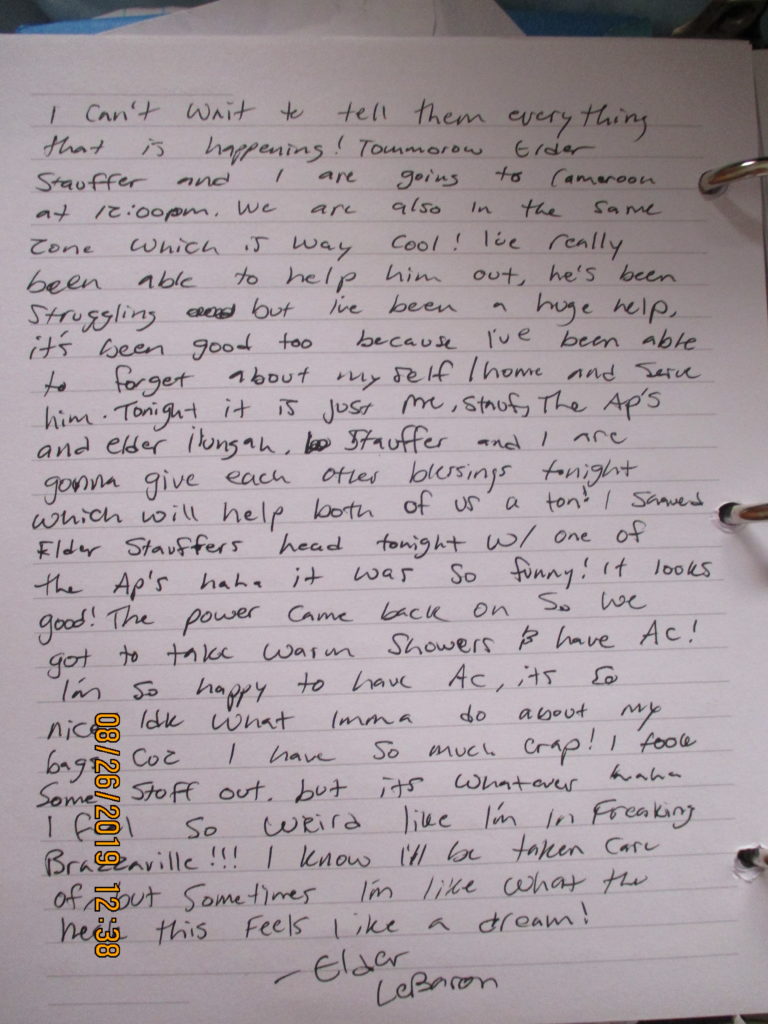 I Can't Wait to tell them everything
that is happening! Tommorow Elder
Stauffer and I are going to Cameroon
at 12:00pm. We are also in the same
zone which is way cool! I've really
been able to help him out, he's been
struggling but i've been a huge help,
it's been good too because I've been able
to forget about my self / home and serve
him. Tonight it is just me, Stauf, The Ap's
and elder Ilungah. Stauffer and I are
gonna give each other blessings tonight
which will help both of us a ton! I Shaved
Elder Stauffers head tonight w/ one of
the Ap's haha it was so funny! It looks
good! The power came back on So We
got to take warm Showers & have AC!
I'm so happy to have AC, its so
nice Idk what Imma do about my
bags Coz I have So much crap! I took
Some Stoff out. but its whatever haha
I feel so weird like I'm in Freaking
Brazzaville!!! I know I'll be taken Care
of, but Sometimes I'm like what the
heck this Feels like a dream!
- Elder
LeBaron
08/26/2019 12:38